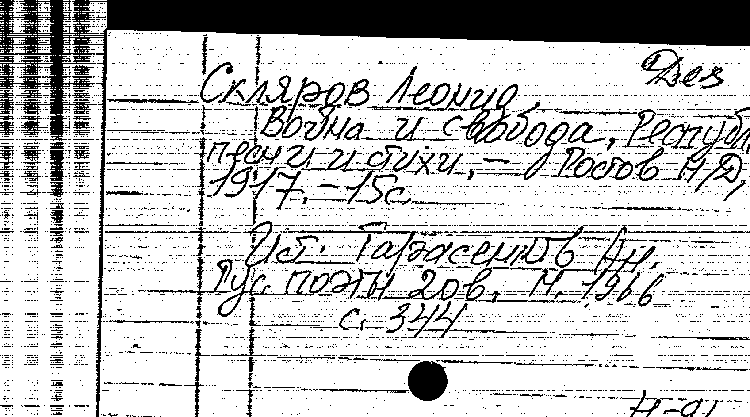 Дез
Скляров Леонид.
Война и свобода. Республ.
песни и стихи. – Ростов Н/Д,
1917. – 15с.
Ист. Тарасенков Ан.
Рус. поэты 20в. М. 1966
с. 344